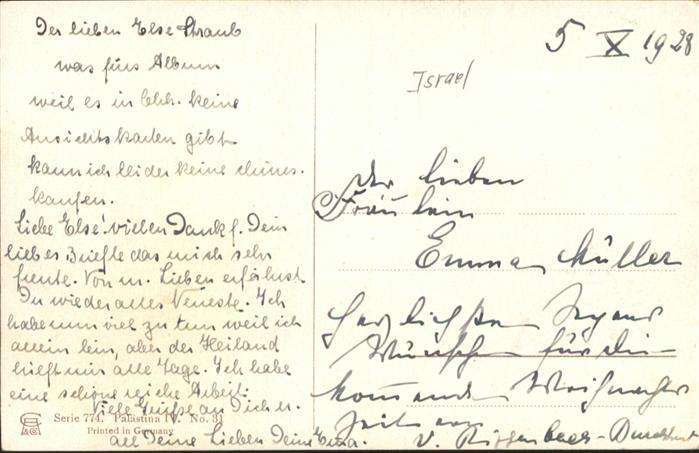 Der lieben Else Straub
was fürs Album
weil es in keine
Ansichtskarten gibt
kann ich leider keine chines.
kaufen.
Liebe Else! vielen Dank f. Dein
liebes Briefle das mich sehr
freute. Von m. Lieben erfährst
Du wieder alles Neueste. Ich
habe nun viel zu tun weil ich
allein bin, aber der Heiland
hilft mir alle Tage. Ich habe
eine schöne reiche Arbeit.
Viele Grüße an Dich u.
all Deine Lieben Deine
Serie 774. Palästina IV. No. 3
Printed in Germany
5 X 1928
Israel
Der lieben
Fräulein
Emma Müller
Herzlichsten Segens
Wünsche für die
kommende Weihnachts
zeit von
v.